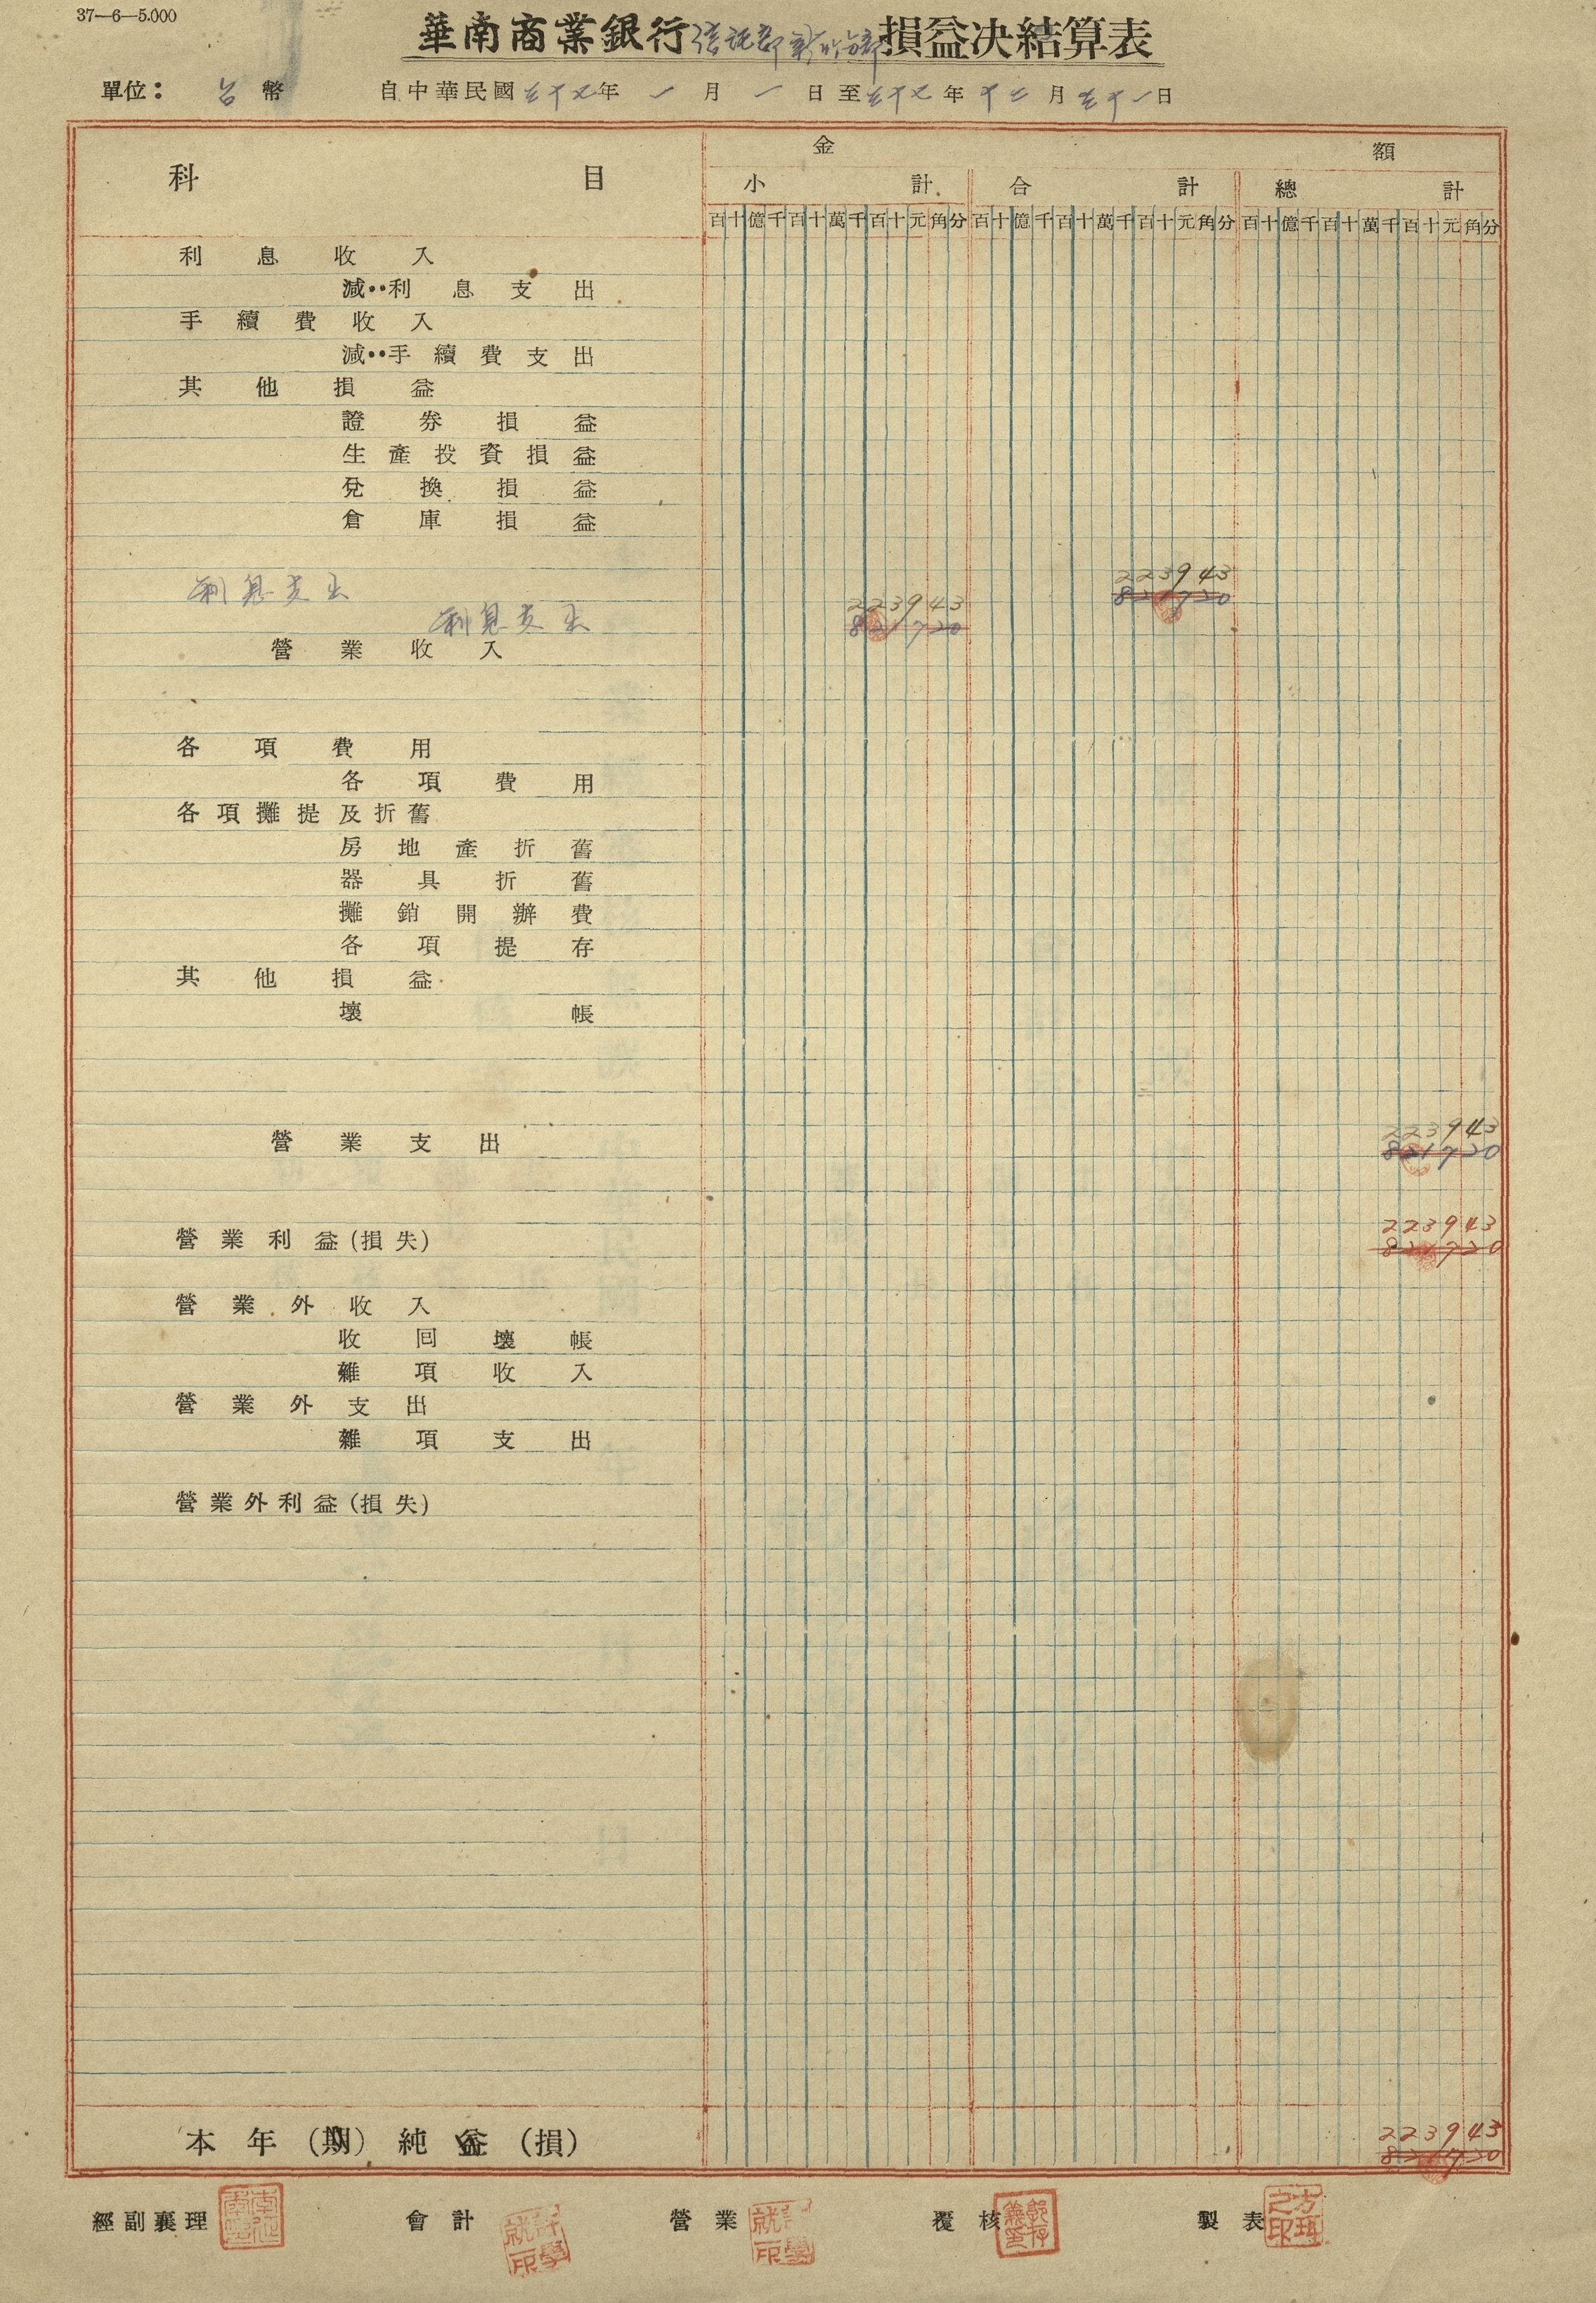 37—6—5.000
華南商業銀行信託部新竹分部損益决結算表
單位：台幣 自中華民國三十七年一月一日至三十七年十二月三十一日
科目 金額
小計 合計 總計
百十億千百十萬千百十元角分 百十億千百十萬千百十元角分 百十億千百十萬千百十元角分
利息收入
減：利息支出
手續費收入
減：手續費支出
其他損益
證券損益
生產投資損益
兌換損益
倉庫損益
利息支出 223943
821720
利息支出 223943
821720
營業收入
各項費用
各項費用
各項攤提及折舊
房地產折舊
器具折舊
攤銷開辦費
各項提存
其他損益
壞帳
營業支出 223943
821720
營業利益(損失) 223943
821720
營業外收入
收回壞帳
雜項收入
營業外支出
雜項支出
營業外利益(損失)
本年(期)純益(損) 223943
821720
經副襄理 會計 營業 覆核 製表